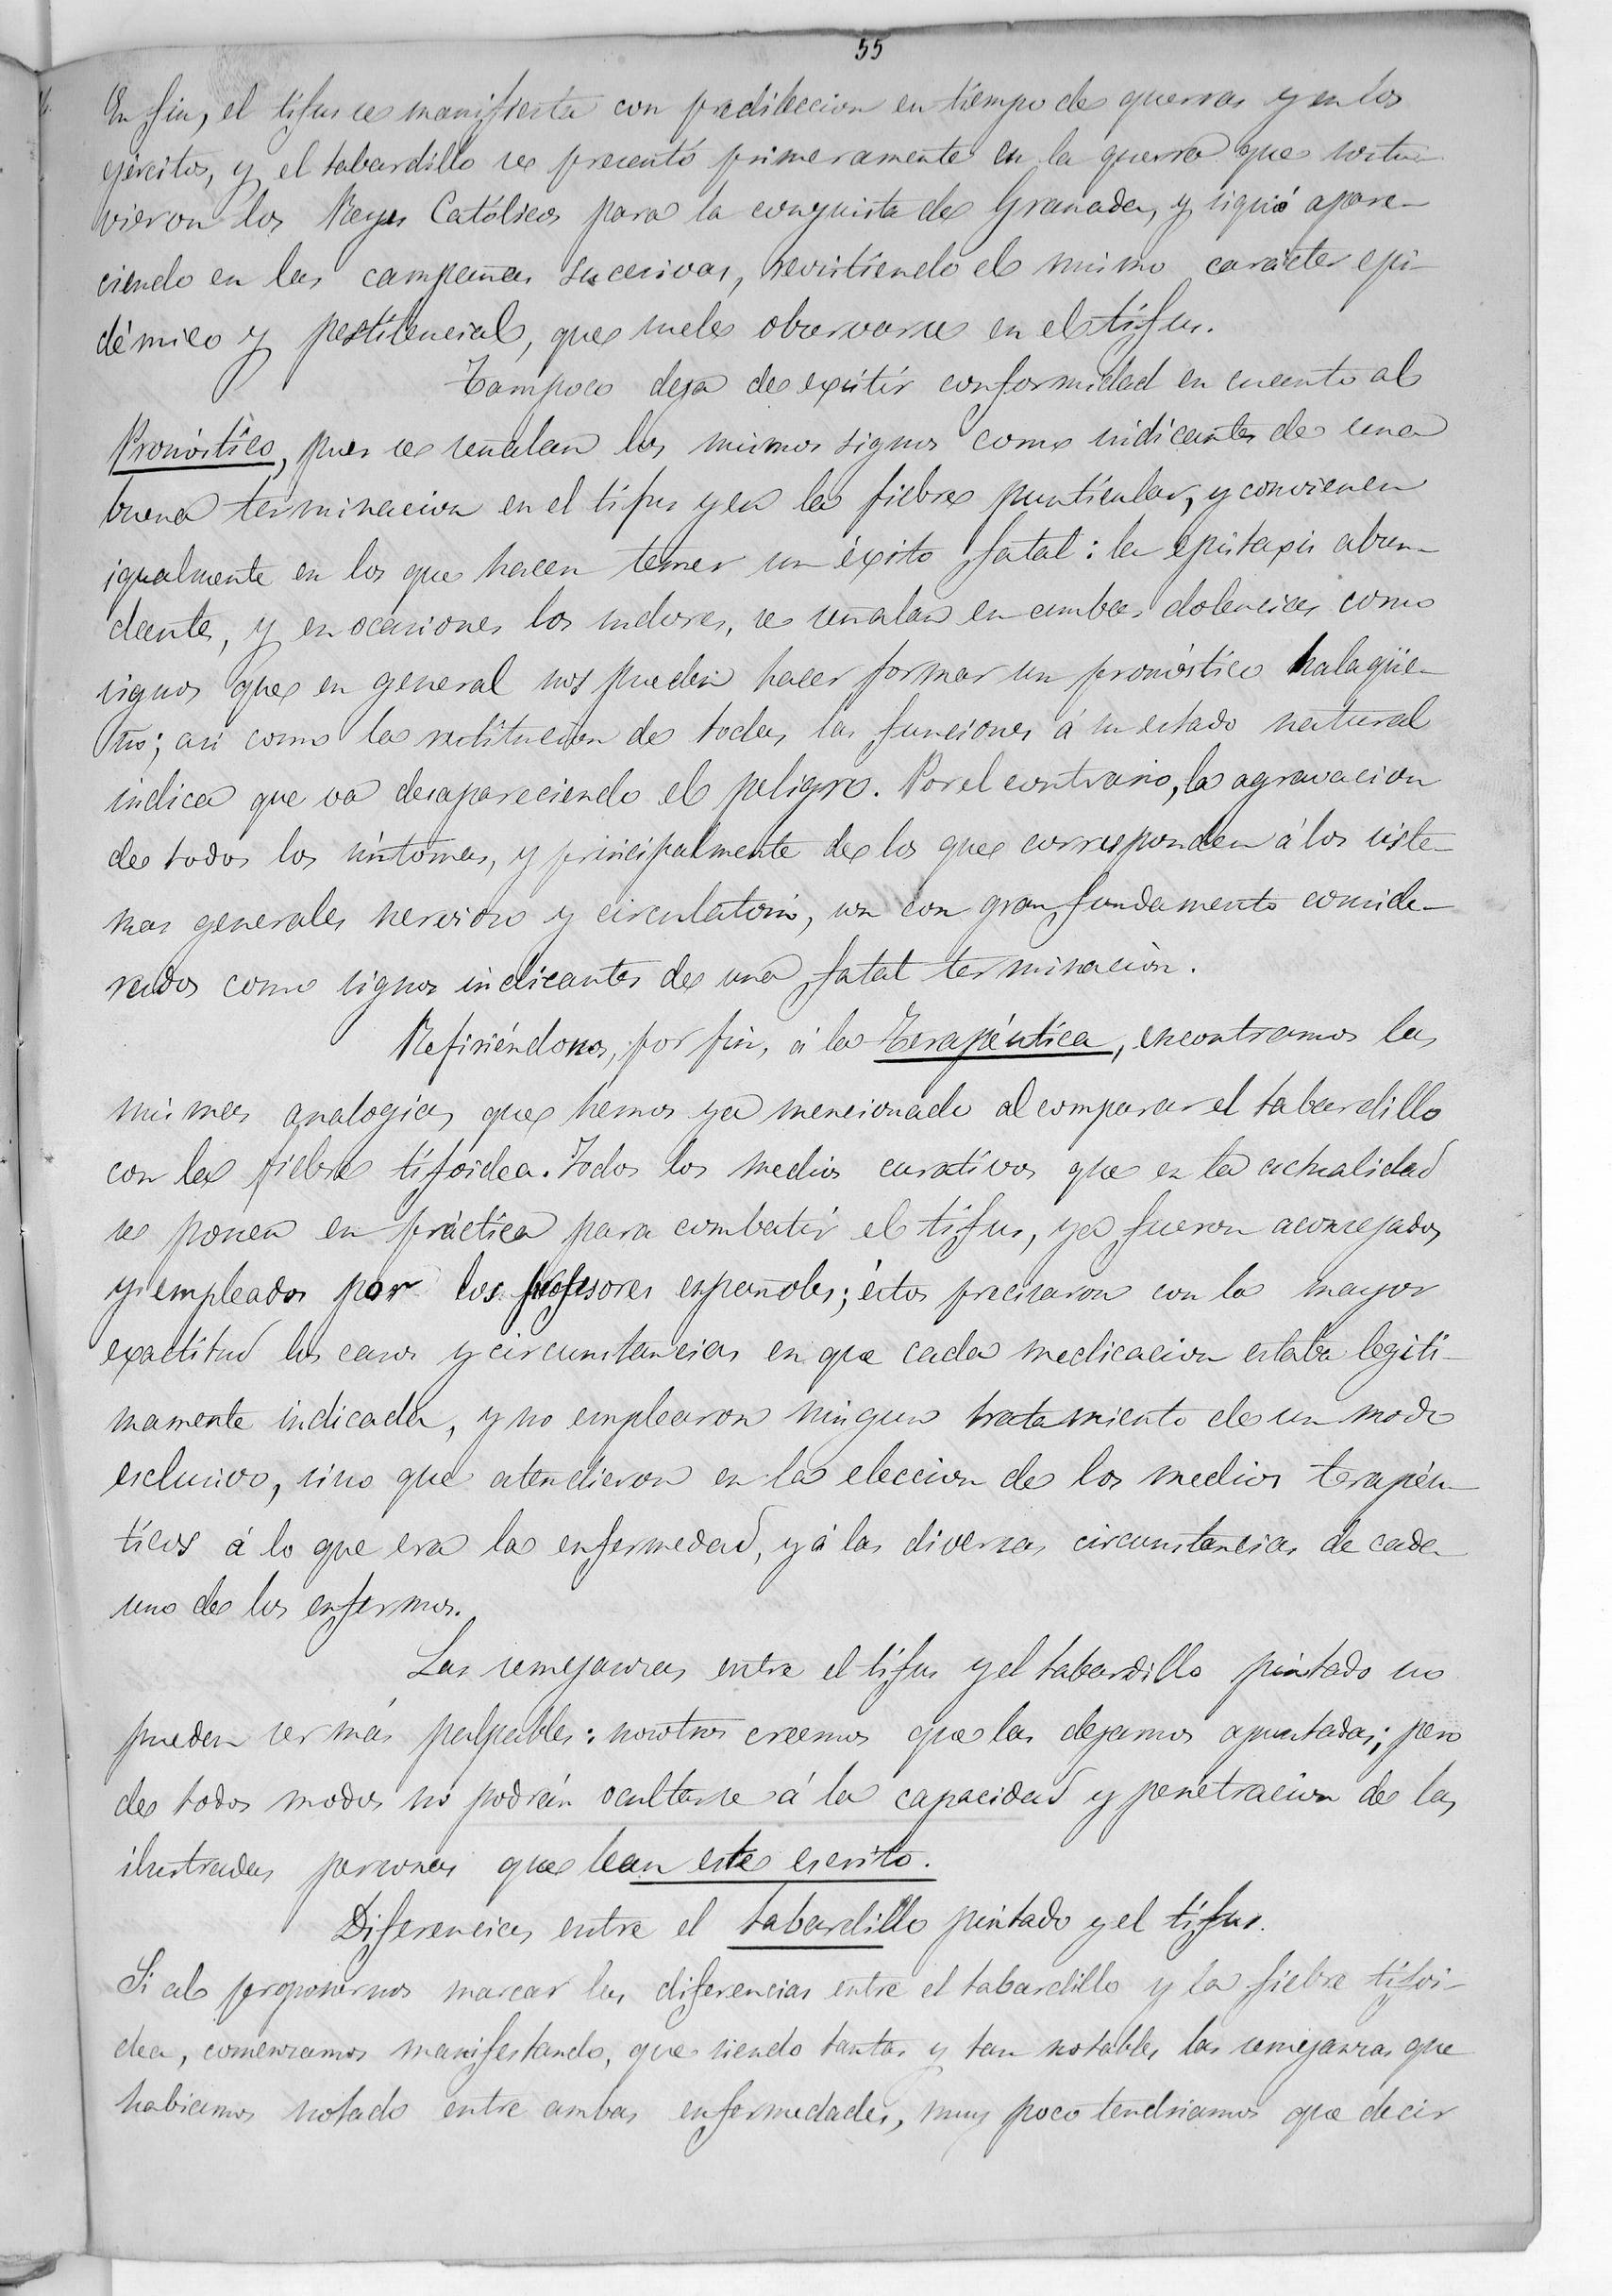 55
En fin, el tifus se manifiesta con predileccion en tiempo de guerras y en los
ejércitos, y el tabardillo se presentó primeramente en la guerra que sostu-
vieron los Reyes Católicos para la conquista de Granada, y siguió apare-
ciendo en las campañas sucesivas, revistiendo el mismo carácter epi-
démico y pestilencial, que suele observarse en el tífus.
Tampoco deja de existir conformidad en cuanto al
Pronóstico, pues se señalan los mismos signos como indicantes de una
buena terminacion en el tifus y en la fiebre punticular, y convienen
igualmente en los que hacen temer un éxito fatal: la epistaxis abun-
dante, y en ocasiones los sudores, se señalan en ambas dolencias como
signos que en general nos pueden hacer formar un pronóstico halagüe-
ño; asi como la restitucion de todas las funciones á su estado natural
indica que va desapareciendo el peligro. Por el contrario, la agravacion
de todos los síntomas, y principalmente de los que corresponden á los siste-
mas generales nervioso y circulatorio, son con gran fundamento conside-
rados como signos indicantes de una fatal terminación.
Refiriéndonos, por fin, á la Terapéutica, encontramos las
mismas analogias que hemos ya mencionado al comparar el tabardillo
con la fiebre tifóidea. Todos los medios curativos que en la actualidad
se ponen en práctica para combatir el tífus, ya fueron aconsejados
y empleados por los profesores españoles; éstos precisaron con la mayor
exactitud los casos y circunstancias en que cada medicacion estaba legiti-
mamente indicada, y no emplearon ningun tratamiento de un modo
esclusivo, sino que atendieron en la eleccion de los medios terapéu-
ticos á lo que era la enfermedad, y á las diversas circunstancias de cada
uno de los enfermos.
Las semejanzas entre el tifus y el tabardillo pintado no
pueden ser más palpables: nosotros creemos que las dejamos apuntadas; pero
de todos modos no podrán ocultarse á la capacidad y penetracion de las
ilustradas personas que lean este escrito.
Diferencias entre el tabardillo pintado y el tífus.
Si al proponernos marcar las diferencias entre el tabardillo y la fiebre tifoi-
dea, comenzamos manifestando, que siendo tantas y tan notables las semejanzas que
habiamos notado entre ambas enfermedades, muy poco tendriamos que decir